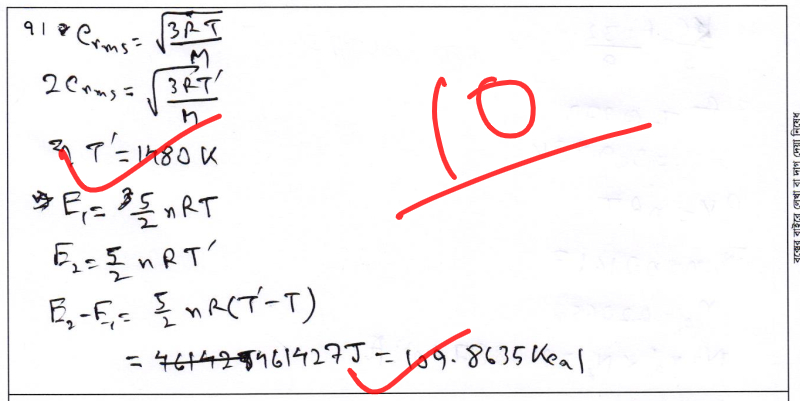 91. Crms = √(3RT/M)
2Crms = √(3RT'/M)
⇒ T' = 1480 K
⇒ E₁ = 5/2 nRT
E₂ = 5/2 nRT'
E₂ - E₁ = 5/2 nR(T' - T)
= 461427 J = 109.8635 Kcal
10
বক্সের বাইরে লেখা বা দাগ দেয়া নিষেধ